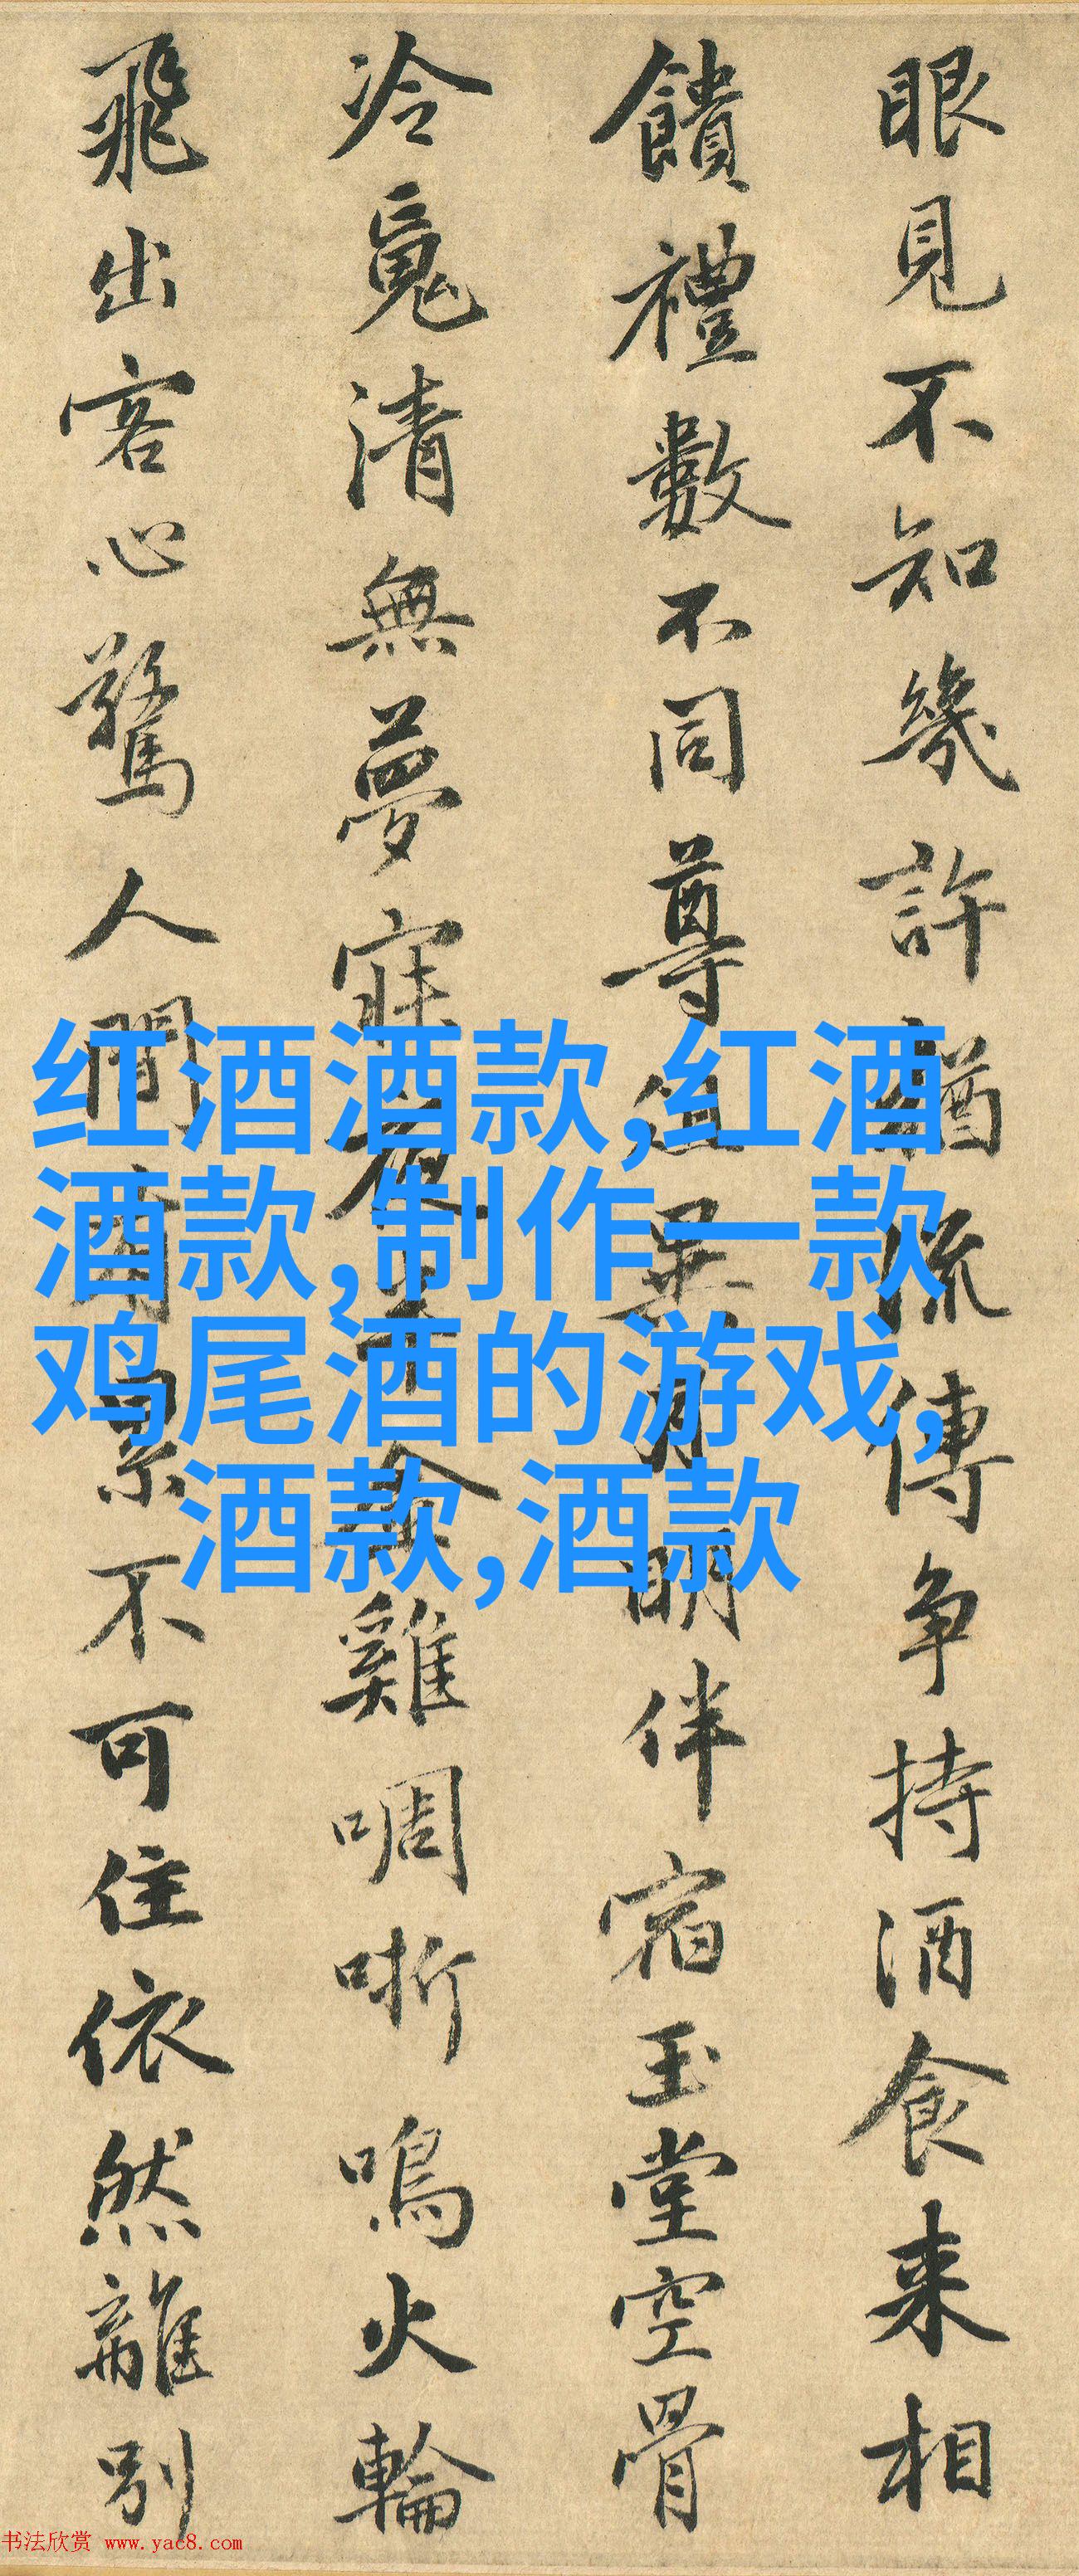 眼見不知幾許猶流傳争持酒食来相
饋禮數不同尊俎異朋伴宿玉堂空骨
冷覓清無夢寐雞啁哳鳴火輪
飛出客心驚人間景不可住依然離别
红酒酒款,红酒
酒款,制作一款
鸡尾酒的游戏,
酒款,酒款
书法欣赏 www.yac8.com